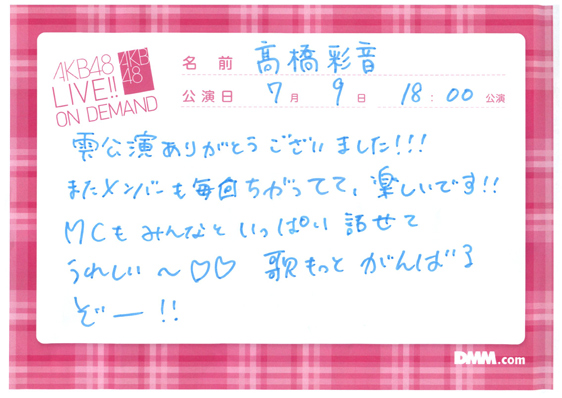 AKB48
LIVE!!
ON DEMAND
AKB
48
名 前 髙橋彩音
公演日 7月 9日 18:00公演
雫公演ありがとうございました!!!
またメンバーも毎回ちがってて、楽しいです!!
MCもみんなといっぱい話せて
うれしい〜♡♡ 歌もっとがんばる
ぞー!!
DMM.com